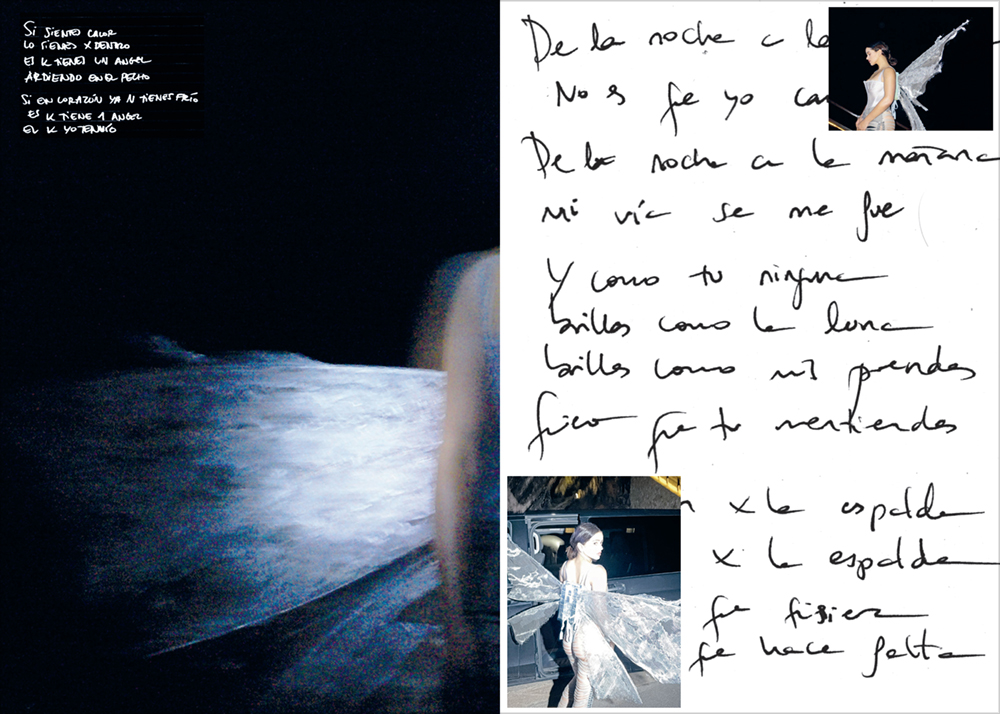 SI SIENTO CALOR
LO TIENES X DENTRO
ES K TIENES UN ANGEL
ARDIENDO EN EL PECHO
SI EN CORAZÓN YA N TIENES FRÍO
ES K TIENE 1 ANGEL
EL K YO
De la noche a la
No es que yo
De la noche a la mañana
mi vía se me fue
Y como tu ninguna
brillas como la luna
brillas como mis prendas
quiero que tu mentiendas
x la espalda
x la espalda
que quisiera
que hace falta